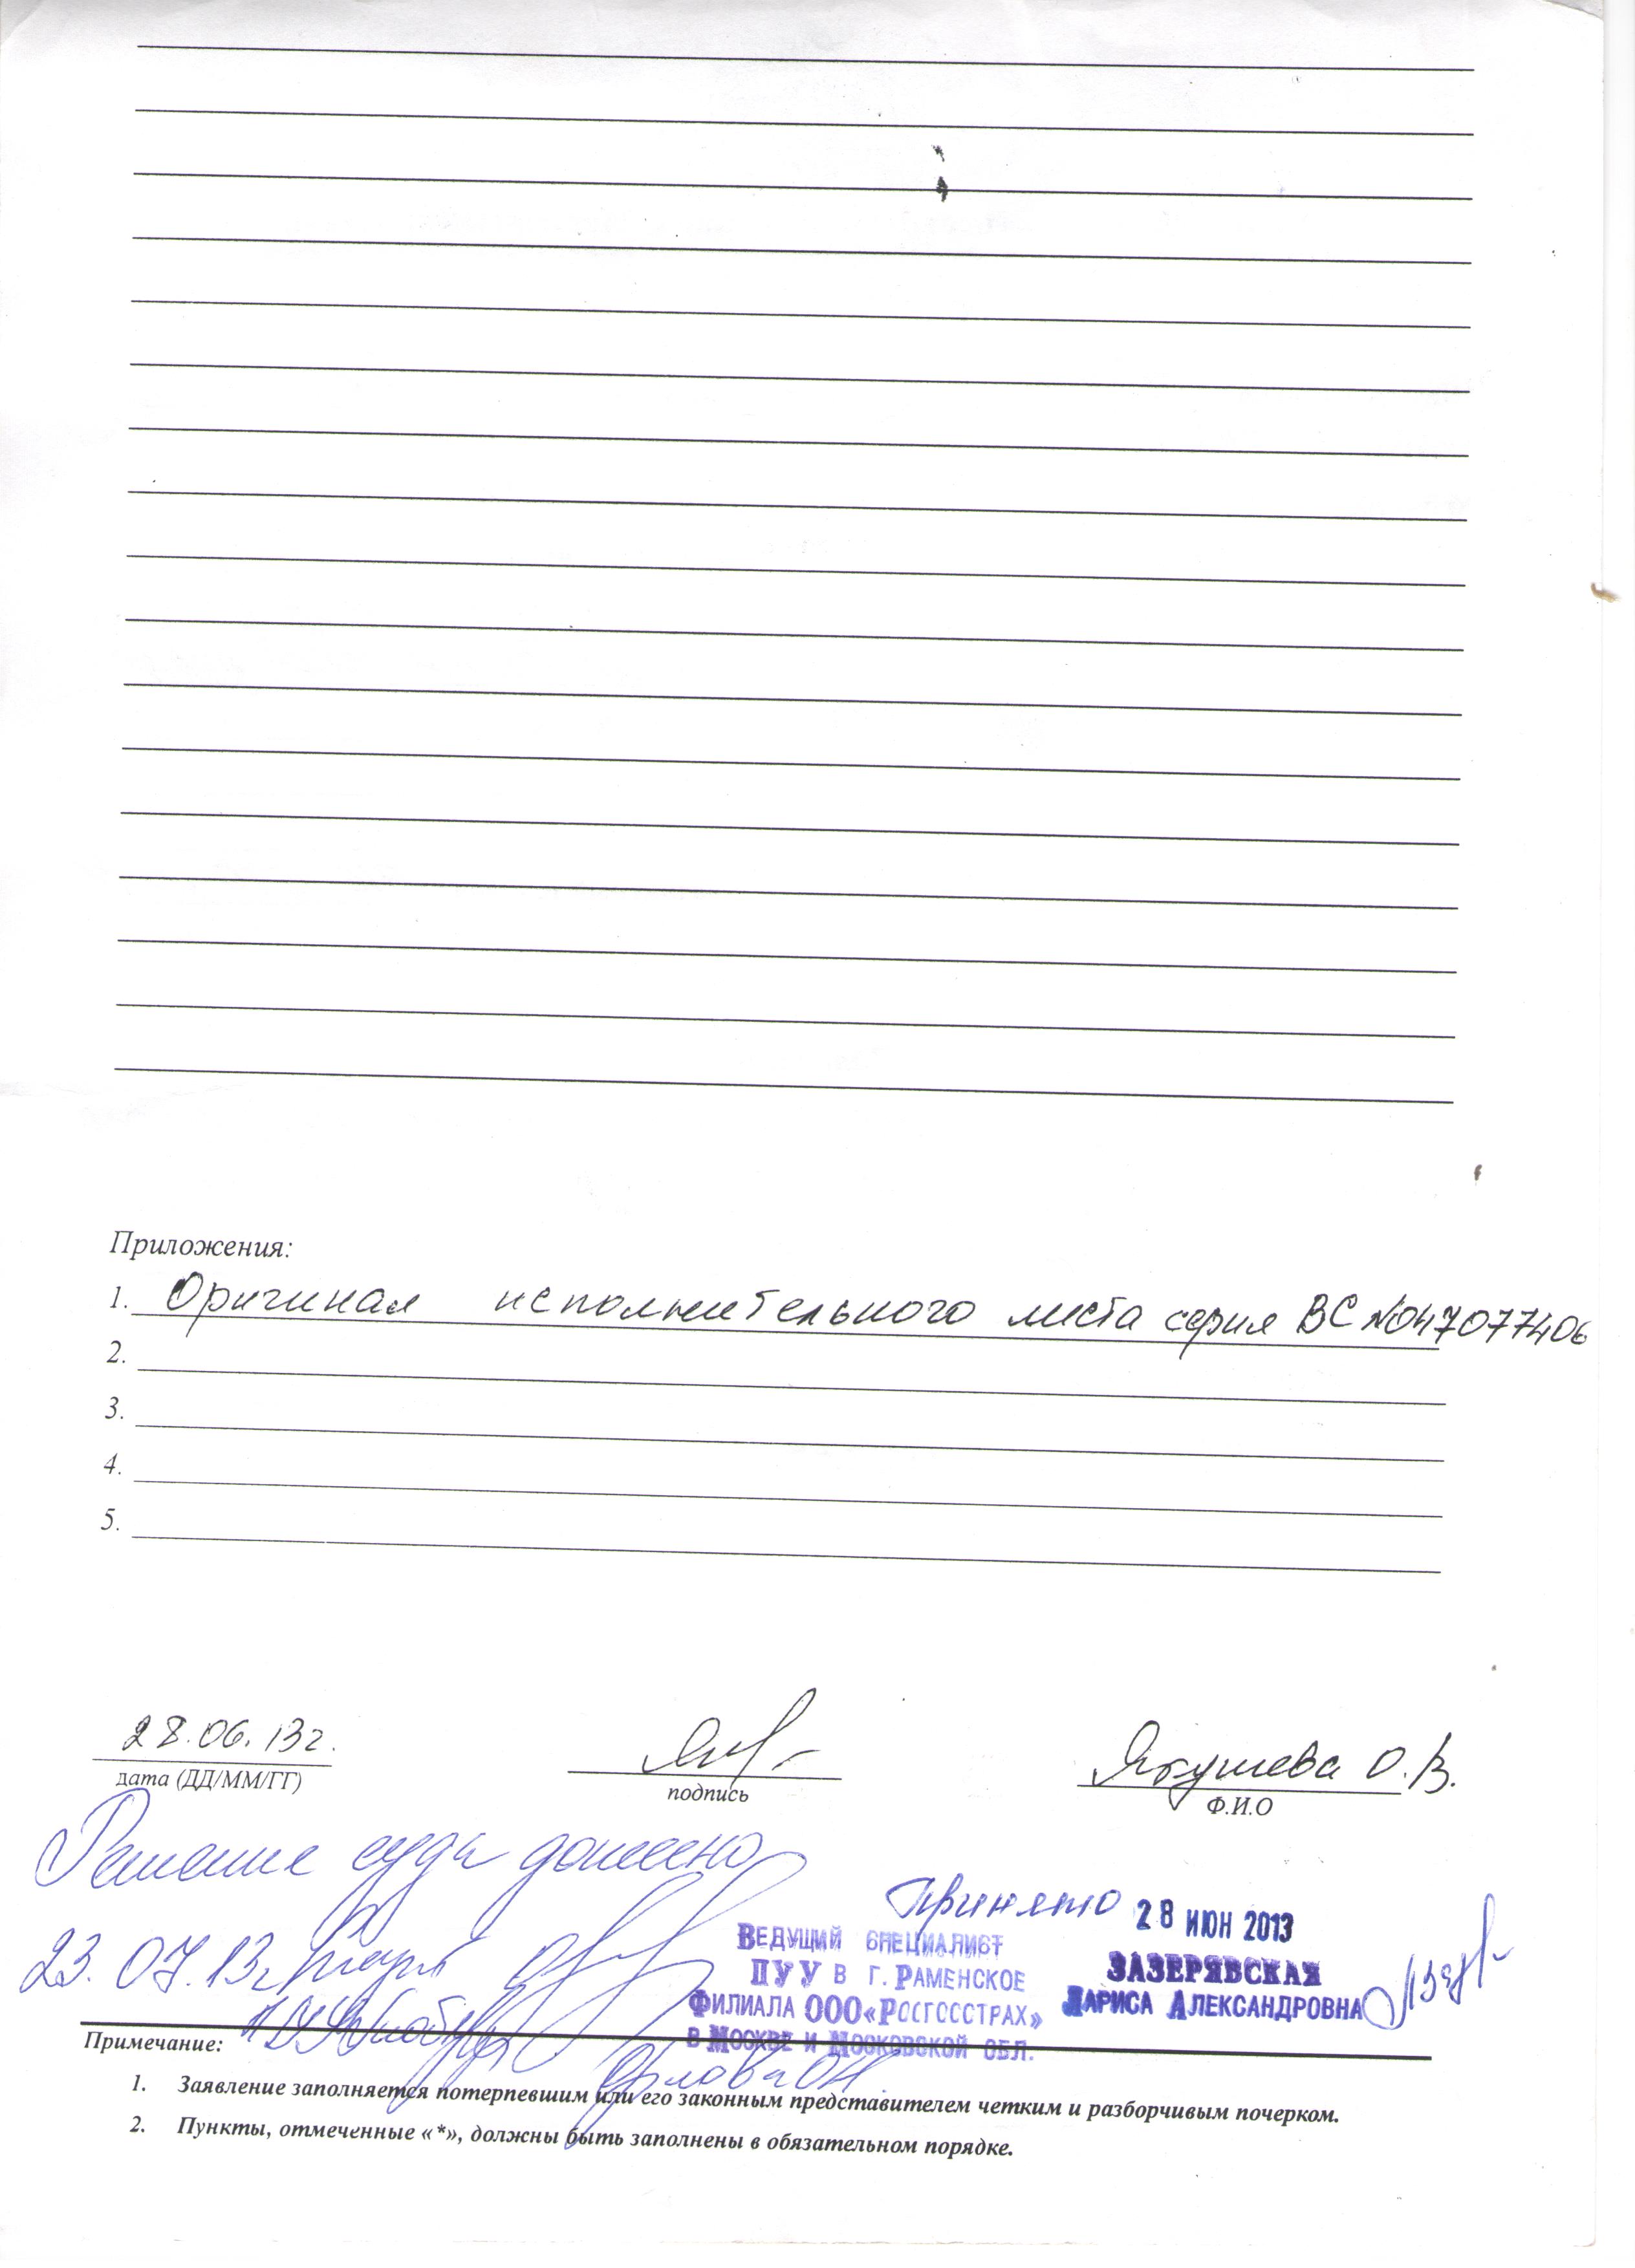 Приложения:
1. Оригинал исполнительного листа серия ВС №047077406
2.
3.
4.
5.
28.06.13г.
дата (ДД/ММ/ГГ)
подпись
Якушева О.В.
Ф.И.О
Решение суда донесено
23.07.13г.
Принято 28 ИЮН 2013
ВЕДУЩИЙ СПЕЦИАЛИСТ
ПУУ В Г. РАМЕНСКОЕ
ФИЛИАЛА ООО«РОСГОССТРАХ»
В МОСКВЕ И МОСКОВСКОЙ ОБЛ.
ЗАЗЕРЯВСКАЯ
ЛАРИСА АЛЕКСАНДРОВНА
Орлова ОН.
Примечание:
1. Заявление заполняется потерпевшим или его законным представителем четким и разборчивым почерком.
2. Пункты, отмеченные «*», должны быть заполнены в обязательном порядке.